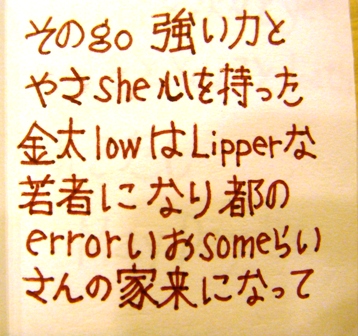 そのgo 強い力と
やさshe心を持った
金太lowはLipperな
若者になり都の
errorいおsomeらい
さんの家来になって